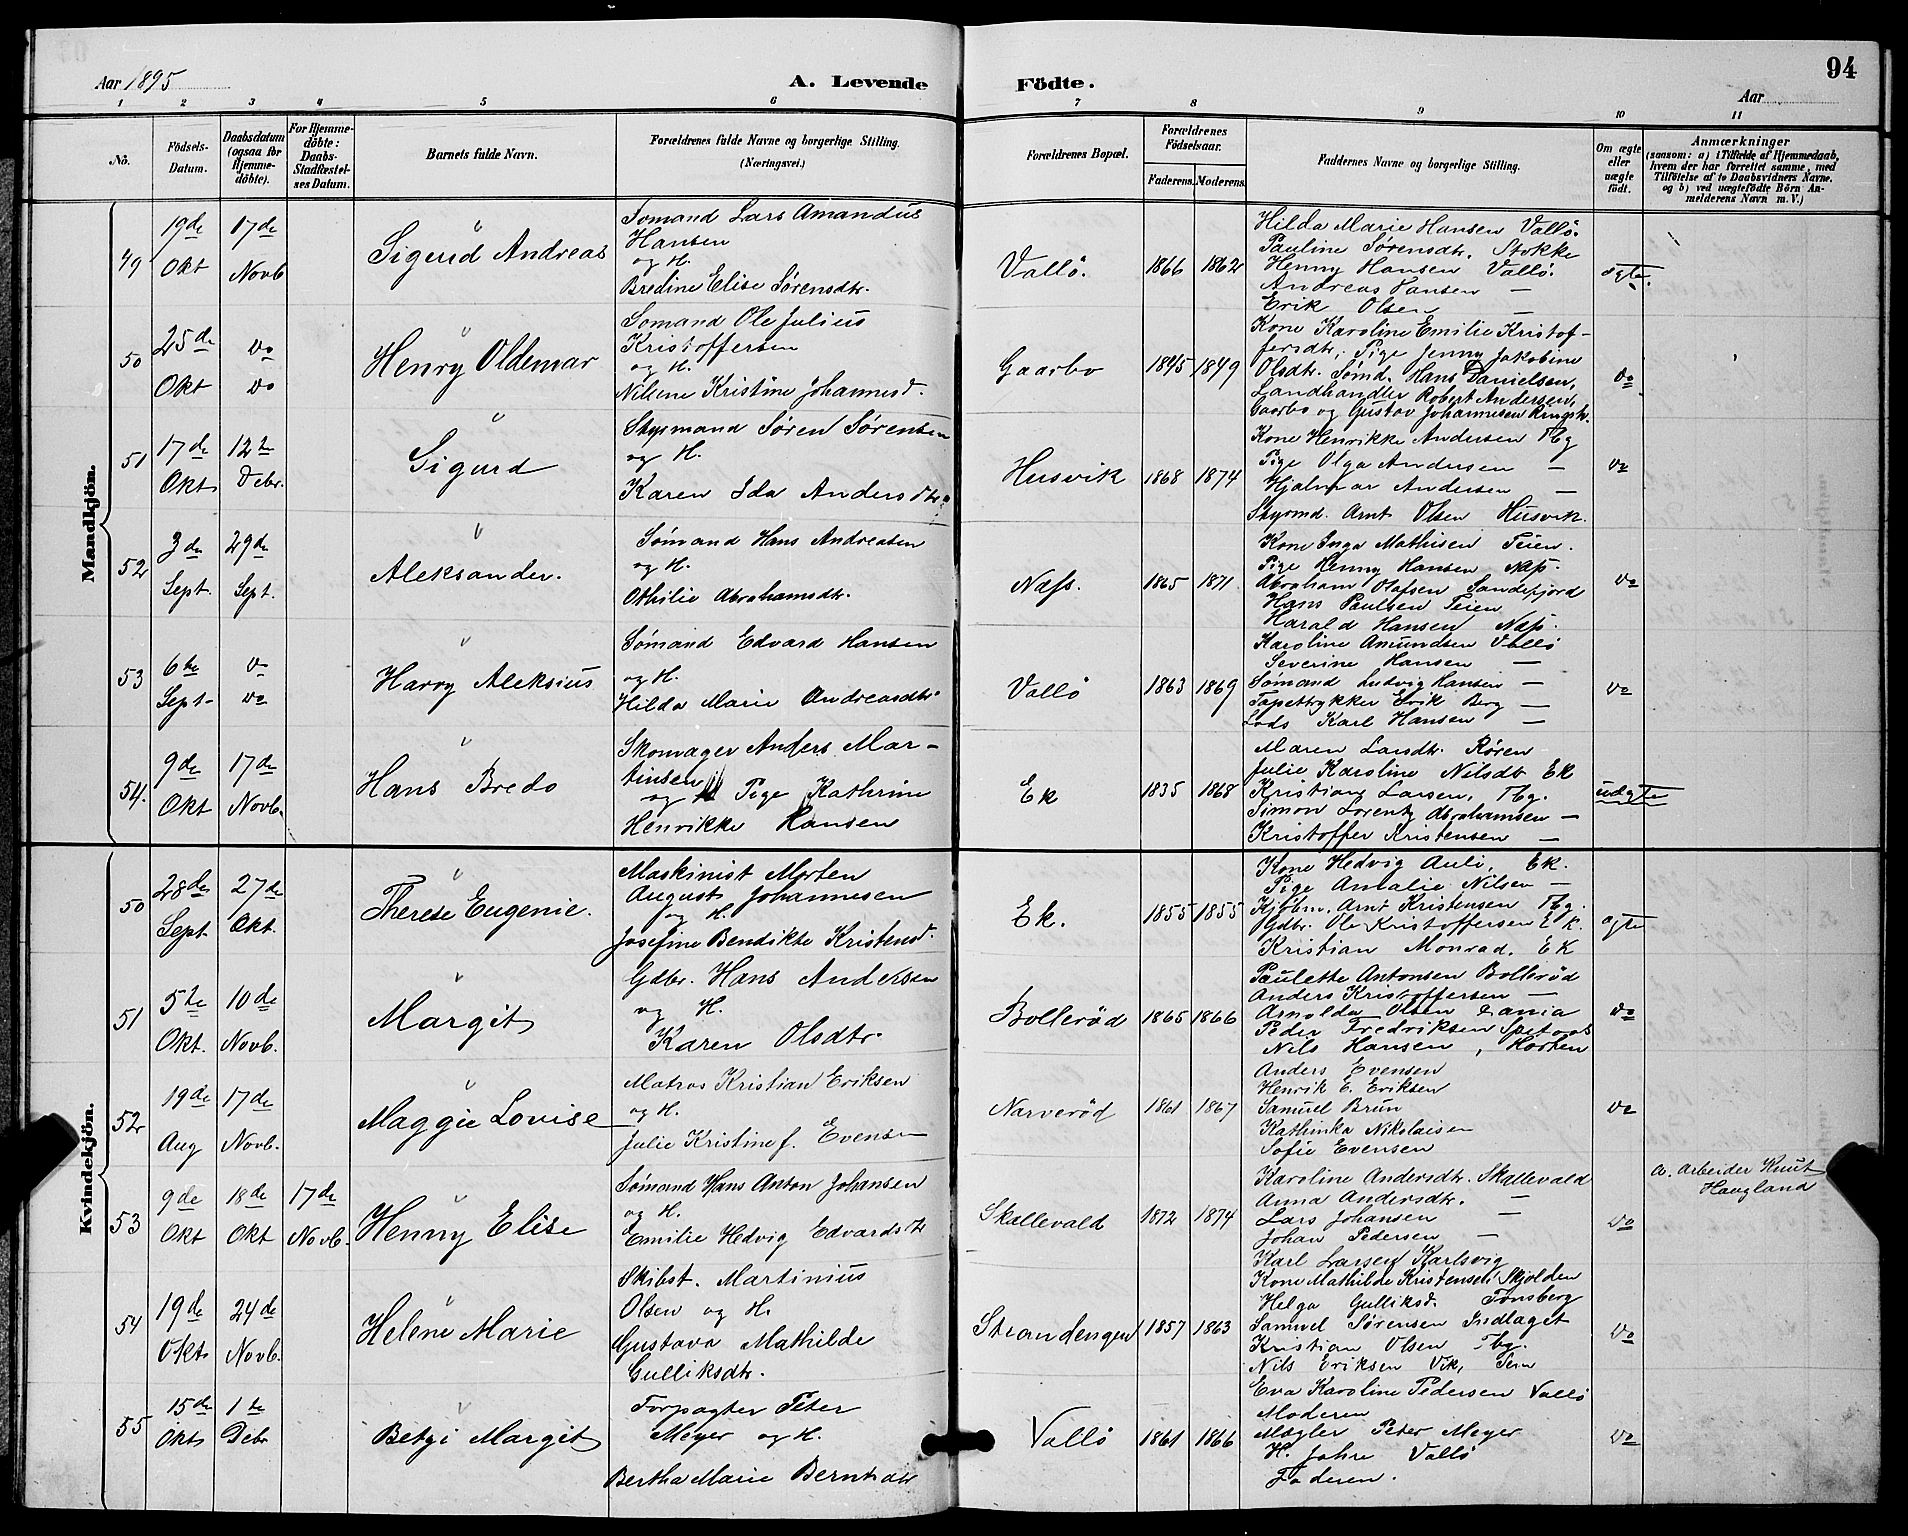 94
Aar 1895
A. Levende
Födte.
Aar
1 2 3 4 5 6 7 8 9 10 11
No.
Födsels-Datum.
Daabsdatum (ogsaa for Hjemme-döbte).
For Hjemme-döbte: Daabs-Stadfæstel-ses Datum.
Barnets fulde Navn.
Forældrenes fulde Navne og borgerlige Stilling.
(Næringsvei.)
Forældrenes Bopæl.
Forældrenes Födselsaar.
Faderens. Moderens.
Faddernes Navne og borgerlige Stilling.
Om ægte eller uægte födt.
Anmærkninger
(saasom: a) i Tilfælde af Hjemmedaab, hvem der har forrettet samme, med Tilföielse af to Daabsvidners Navne, og b) ved uægtefödte Börn An-melderens Navn m. V.)
Mandkjön.
49
19de Okt
17de Novb
Sigurd Andreas
Sømand Lars Amandus
Hansen
og H.
Bredine Elise Sørensdtr.
Vallö.
1866 1862
Hilda Marie Hansen Vallö.
Pauline Sørensdtr. Stokke
Henny Hansen Vallö.
Andreas Hansen —
Erik Olsen —
ægte.
50
25de Okt
do do
Henry Oldemar
Sømand Ole Julius
Kristoffersen
og H.
Nilsine Kristine Johannesd.
Gaarbo
1845 1849
Kone Karoline Emilie Kristof-
fersdtr; Pige Jenny Jakobine
Olsdtr. Sømd. Hans Danielsen,
Landhandler Robert Andersen,
Gaarbo og Gustav Johannesen Ringsh.
do
51
17de Okt
12te Debr.
Sigurd
Styrmand Søren Sørensen
og H.
Karen Ida Andersdtr.
Husvik
1868 1874
Kone Henrikke Andersen Tbg
Pige Olga Andersen —
Hjalmar Andersen —
Styrmd. Arnt Olsen Husvik.
do
52
3de Sept.
29de Sept.
Aleksander.
Sømand Hans Andreasen
og H.
Othilie Abrahamsdtr.
Næss.
1865 1871
Kone Inga Mathisen Teien.
Pige Henny Hansen Næss.
Abraham Olafsen Sandefjord
Hans Paulsen Teien
Harald Hansen Næss.
do
53
6te Sept-
do do
Harry Aleksius
Sømand Edvard Hansen
og H.
Hilda Marie Andreasdtr
Vallö
1863 1869
Karoline Amundsen Vallö
Severine Hansen —
Sømand Ludvig Hansen —
Tapettrykker Erik Berg —
Lods Karl Hansen —
do
54.
9de Okt
17de Novb.
Hans Bredo
Skomager Anders Mar-
tinsen
og Pige Kathrine
Henrikke Hansen
Ek
1835 1868
Maren Larsdtr. Røren
Julie Karoline Nilsdtr Ek
Kristiane Larsen, Tbg.
Simon Lorentz Abrahamsen —
Kristoffer Kristensen —
uægte
Kvindekjön.
50
28de Sept
27de Okt.
Therese Eugenie.
Maskinist Morten
August Johannesen
og H.
Josefine Bendikte Kristensd.
Ek.
1855 1855
Kone Hedvig Auli, Ek.
Pige Amalie Nilsen —
Kjøbm. Arnt Kristensen Tbg.
Gdbr. Ole Kristoffersen Ek.
Kristian Monrad, Ek
ægte
51
5te Okt.
10de Novb.
Margit
Gdbr. Hans Andersen
og H.
Karen Olsdtr.
Bollerød
1865 1866
Paulette Antonsen Bollerød
Anders Kristoffersen —
Arnolda Olsen
Peder Fredriksen
Nils Hansen, Horten
do
52
19de Aug
17de Novb.
Maggie Lovise
Matros Kristian Eriksen
og H.
Julie Kristine f. Evensen
Narverød
1861 1867
Anders Evensen
Henrik E. Eriksen
Samuel Brun
Kathinka Nikolaisen
Sofie Evensen
do
53
9de Okt
18de Okt
17de Novb.
Henny Elise
Sømand Hans Anton Johansen
og H.
Emilie Hedvig Edvardsdtr
Skallevald
1872 1874
Karoline Andersdtr. Skallevald
Anna Andersdtr. —
Lars Johansen —
Johan Pedersen —
Karl Larsen Karlsvig
do
a. Arbeider Knut
Haugland
54
19de Okt
24de Novb.
Helene Marie
Skibst. Martinius
Olsen og H.
Gustava Mathilde
Gulliksdtr.
Strandengen
1857 1863
Kone Mathilde Kristensen Skjolden
Helga Gulliksd. Tønsberg
Samuel Sørensen Indlaget
Kristian Olsen Tbg.
Nils Eriksen Vik, Sem
do
55
15de Okt
1te Debr
Betzi Margit
Forpagter Peter
Meyer og H.
Bertha Marie Berntsdtr
Vallö
1861 1866
Eva Karoline Pedersen Vallö
Moderen
Mægler Peter Meyer
H. Jahre Vallö
Faderen.
do